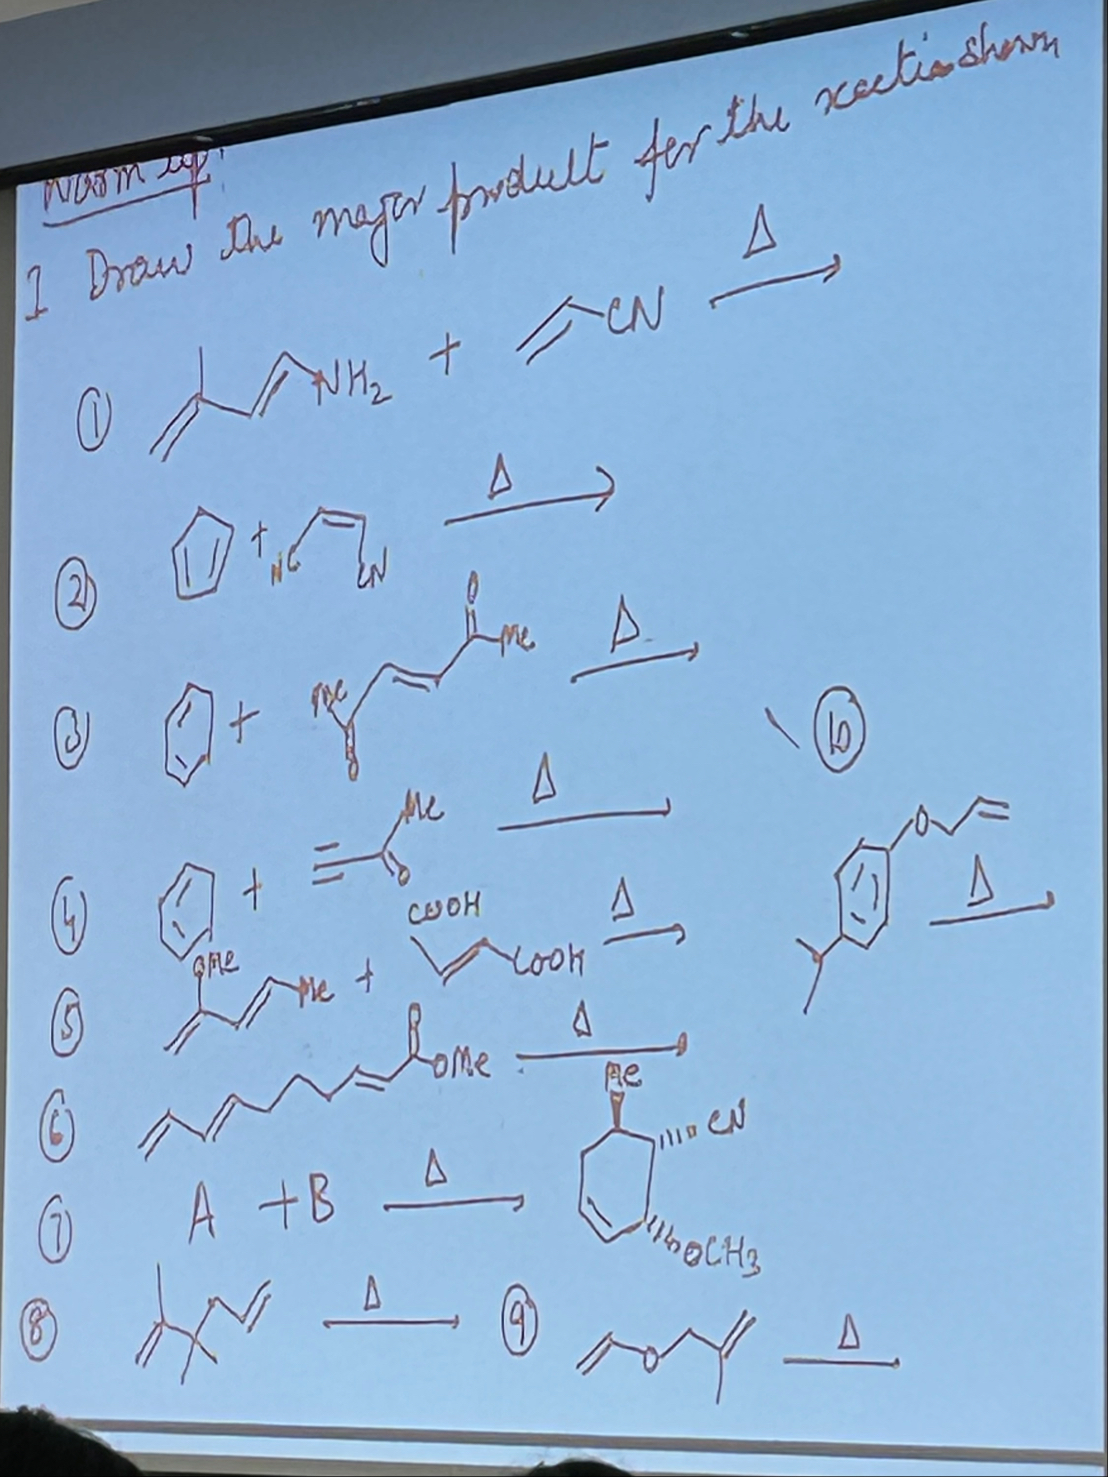 Warm up:
I Draw the major product for the reactio shown
① NH2 + CN Δ
② + NC CN Δ
③ + Me O O Me Δ
④ + Me O Δ
⑤ OMe Me + COOH COOH Δ
⑥ O OMe Δ
⑦ A + B Δ Me CN OCH3
⑧ Δ
⑨ O Δ
⑩ O Δ